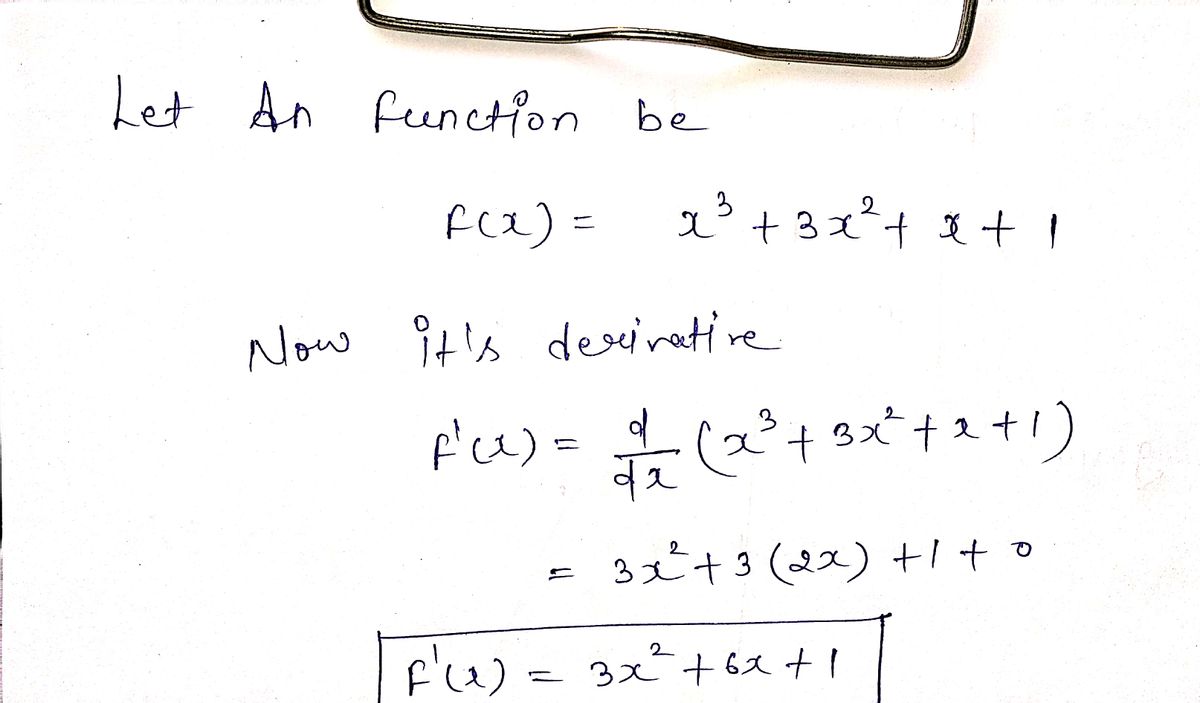 Let An function be
f(x) = x³ + 3x² + x + 1
Now it's derivative
f'(x) = d/dx (x³ + 3x² + x + 1)
= 3x² + 3(2x) + 1 + 0
f'(x) = 3x² + 6x + 1